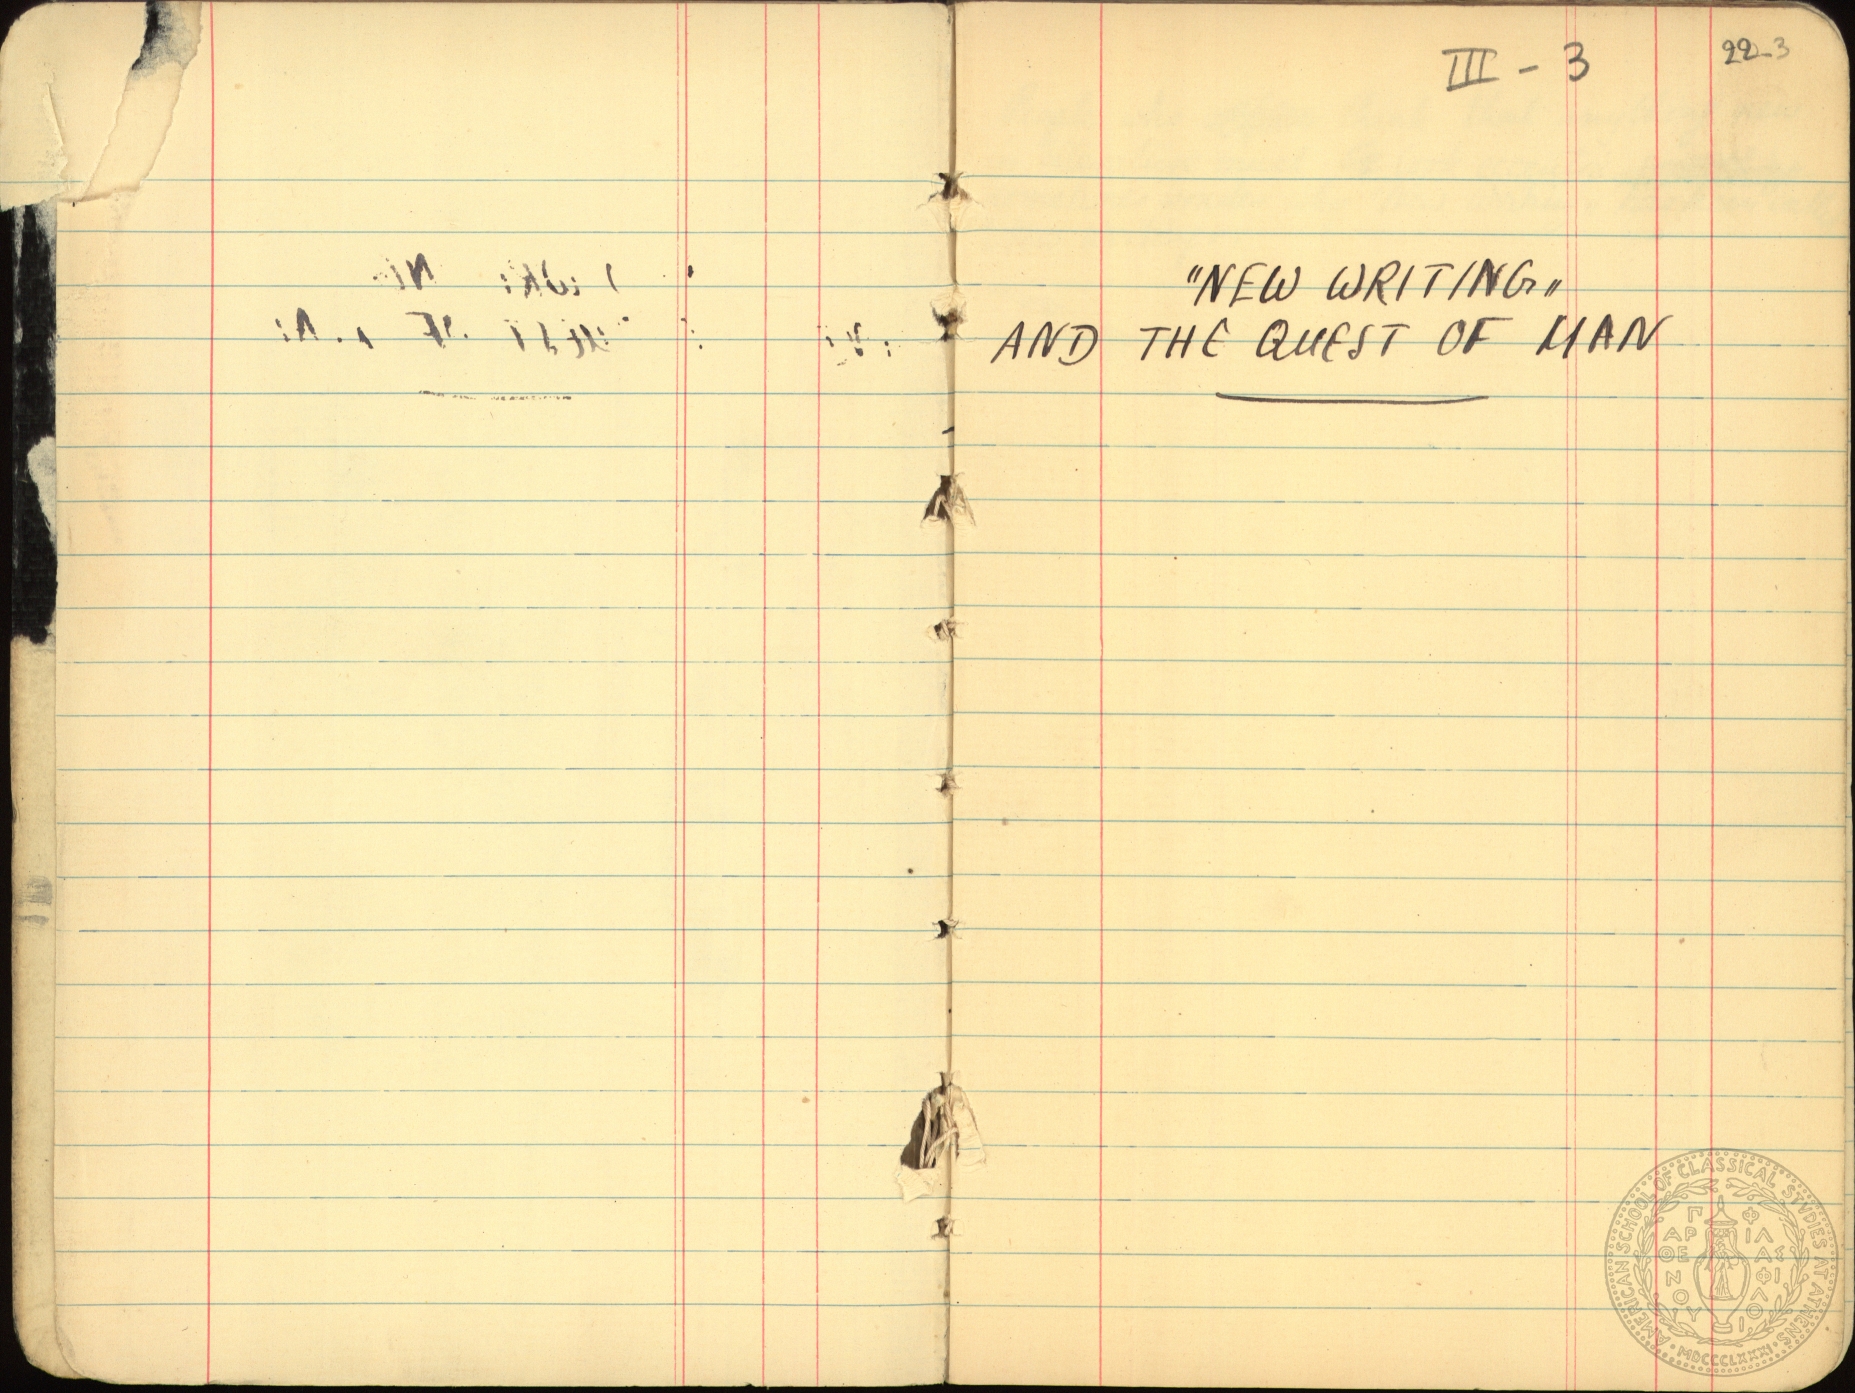 III - 3
22-3
"NEW WRITING"
AND THE QUEST OF MAN
AMERICAN SCHOOL OF CLASSICAL STVDIES AT ATHENS
ΠΑΡΘΕΝΟΥ
ΦΙΛΑΣ ΦΙΛΟΙ
MDCCCLXXXI